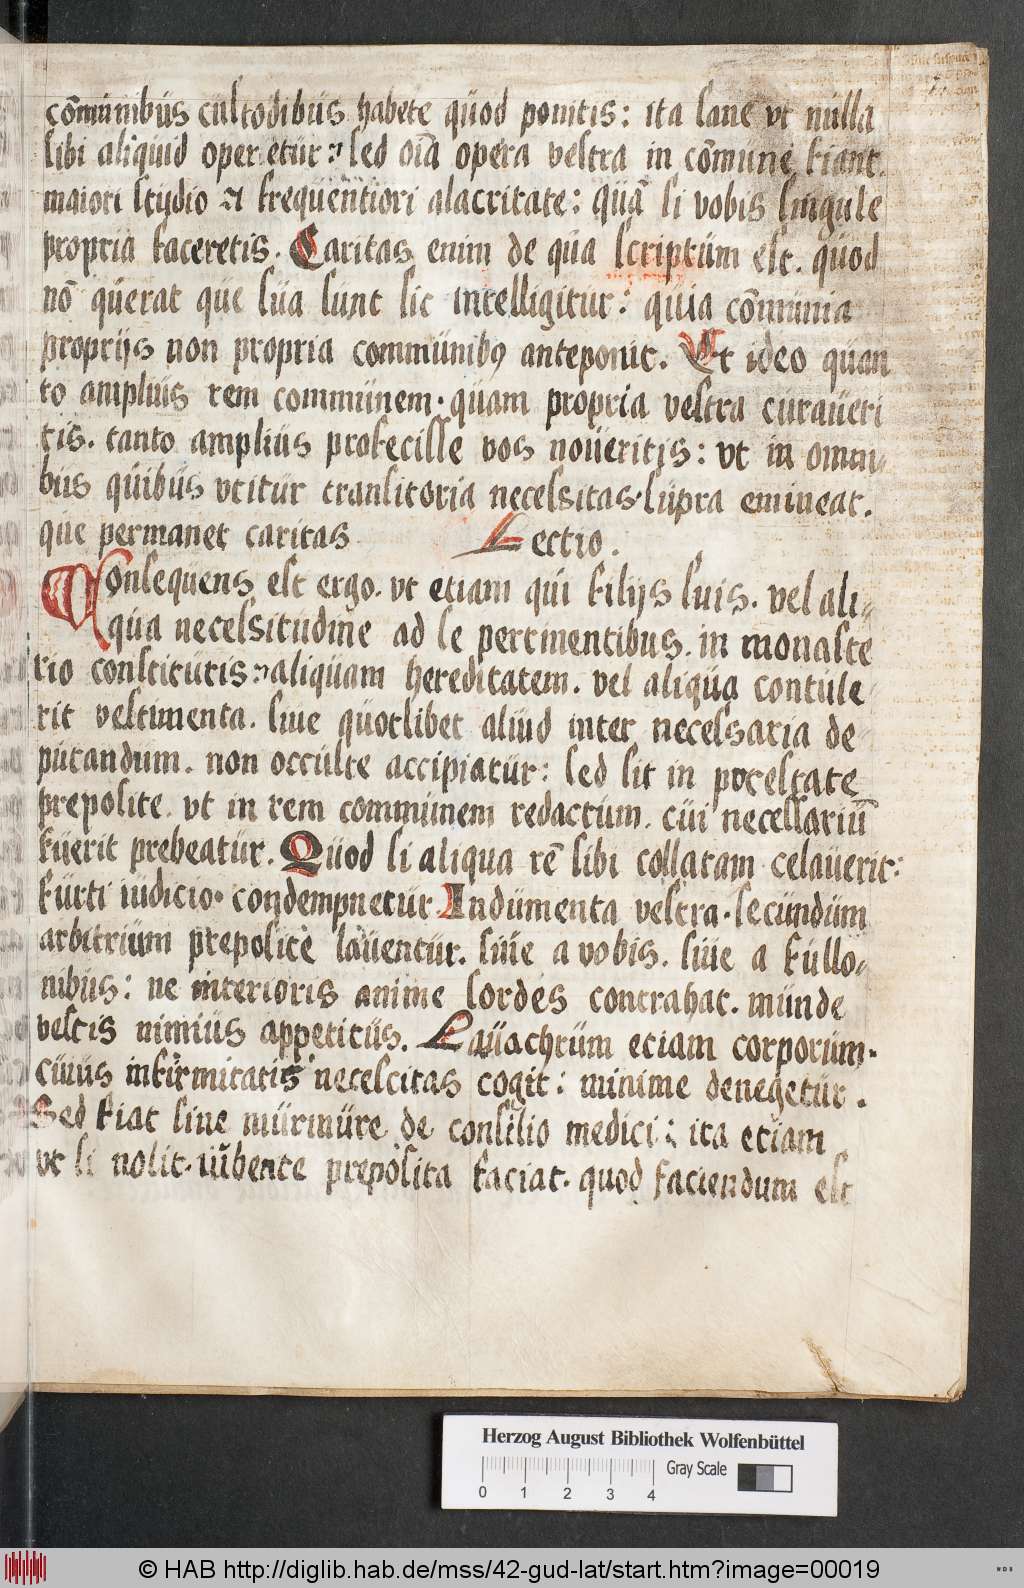 cōmunibus custodibus habete quod ponitis: ita sane vt nulla
sibi aliquid operetur: sed oīa opera vestra in cōmune fiant.
maiori studio et frequentiori alacritate: quā si vobis singule
propria faceretis. Caritas enim de qua scriptum est. quod
nō querat que sua sunt sic intelligitur: quia cōmunia
proprijs non propria communibꝰ anteponit. Et ideo quan
to amplius rem communem. quam propria vestra curaueri
tis. tanto amplius profecisse vos noueritis: vt in omni-
bus quibus vtitur transitoria necessitas. supra emineat.
que permanet caritas
Lectio.
Consequens est ergo. vt etiam qui filijs suis. vel ali-
qua necessitudine ad se pertinentibus. in monaste
rio constitutis aliquam hereditatem. vel aliqua contule-
rit vestimenta. siue quotlibet aliud inter necessaria de-
putandum. non occulte accipiatur: sed sit in potestate
preposite. vt in rem communem redactum. cui necessariū
fuerit prebeatur. Quod si aliqua rē sibi collatam celauerit:
furti iudicio. condempnetur. Indumenta vestra. secundum
arbitrium preposite lauentur. siue a vobis. siue a fullo-
nibus: ne interioris anime sordes contrahat. munde
vestis nimius appetitus. Lauachrum etiam corporum.
cuius infirmitatis necescitas cogit: minime denegetur.
Sed fiat sine murmure de consilio medici: ita etiam
vt si nolit. iubente preposita faciat. quod faciendum est
Herzog August Bibliothek Wolfenbüttel
Gray Scale
0 1 2 3 4
© HAB http://diglib.hab.de/mss/42-gud-lat/start.htm?image=00019